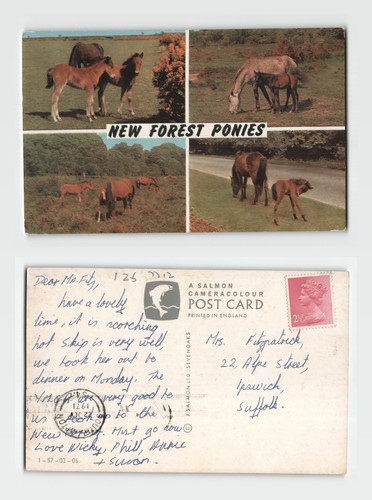 NEW FOREST PONIES
Dear Ms. Fitz,
have a lovely
time, it is scorching
hot Skip is very well
we took her out to
dinner on Monday. The
are very good to
us to the
New Forest. Must go now
Love Nicky, Phill, Annie
+ Susan.
1-57-02-06
A SALMON
CAMERACOLOUR
POST CARD
PRINTED IN ENGLAND
J. SALMON LTD., SEVENOAKS
©
1971
2½
Ms. Fitzpatrick,
22, Alpe Street,
Ipswich,
Suffolk.